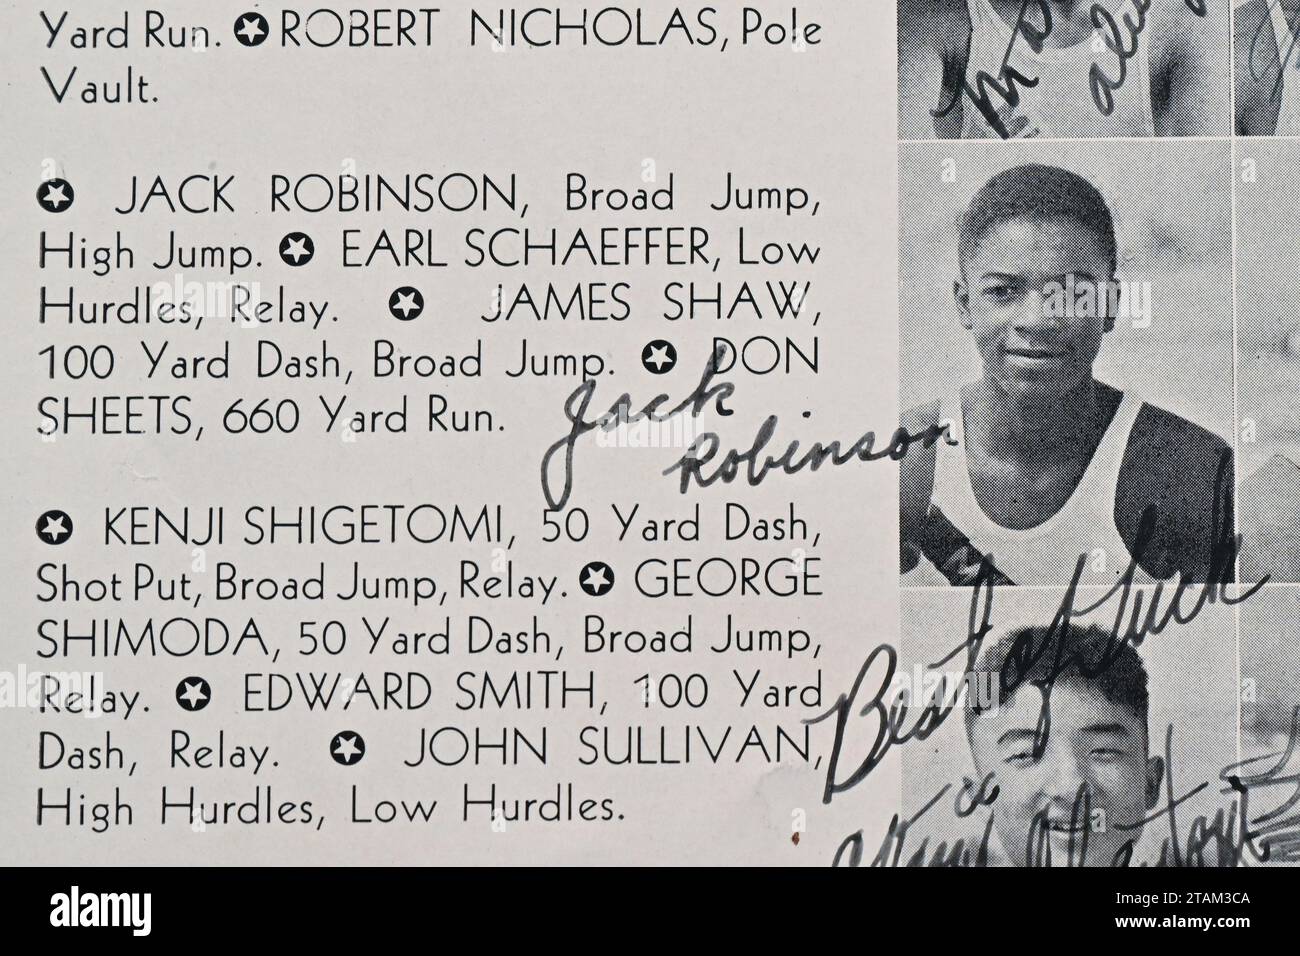 Yard Run. ROBERT NICHOLAS, Pole
Vault.
JACK ROBINSON, Broad Jump,
High Jump. EARL SCHAEFFER, Low
Hurdles, Relay. JAMES SHAW,
100 Yard Dash, Broad Jump. DON
SHEETS, 660 Yard Run.
Jack
Robinson
KENJI SHIGETOMI, 50 Yard Dash,
Shot Put, Broad Jump, Relay. GEORGE
SHIMODA, 50 Yard Dash, Broad Jump,
Relay. EDWARD SMITH, 100 Yard
Dash, Relay. JOHN SULLIVAN,
High Hurdles, Low Hurdles.
Best of luck
alamy
alamy
alamy
alamy
Image ID: 2TAM3CA
www.alamy.com